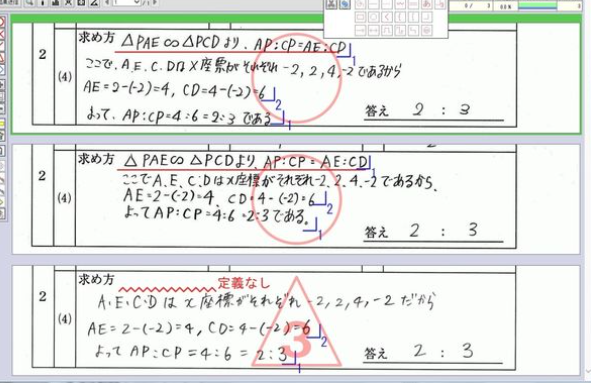 2
(4)
求め方 △PAE∽△PCDより、AP:CP=AE:CD 1
ここで、A、E、C、Dはx座標がそれぞれ-2,2,4,-2であるから
AE=2-(-2)=4、CD=4-(-2)=6 2
よって、AP:CP=4:6=2:3である 1
答え 2 : 3
2
(4)
求め方 △PAE∽△PCDより、AP:CP=AE:CD 1
ここでA、E、C、Dはx座標がそれぞれ-2,2,4,-2であるから、
AE=2-(-2)=4、CD=4-(-2)=6 2
よってAP:CP=4:6=2:3である。 1
答え 2 : 3
2
(4)
求め方 定義なし
A、E、C、Dはx座標がそれぞれ-2,2,4,-2だから
AE=2-(-2)=4, CD=4-(-2)=6 2
よってAP:CP=4:6=2:3 1
3
答え 2 : 3